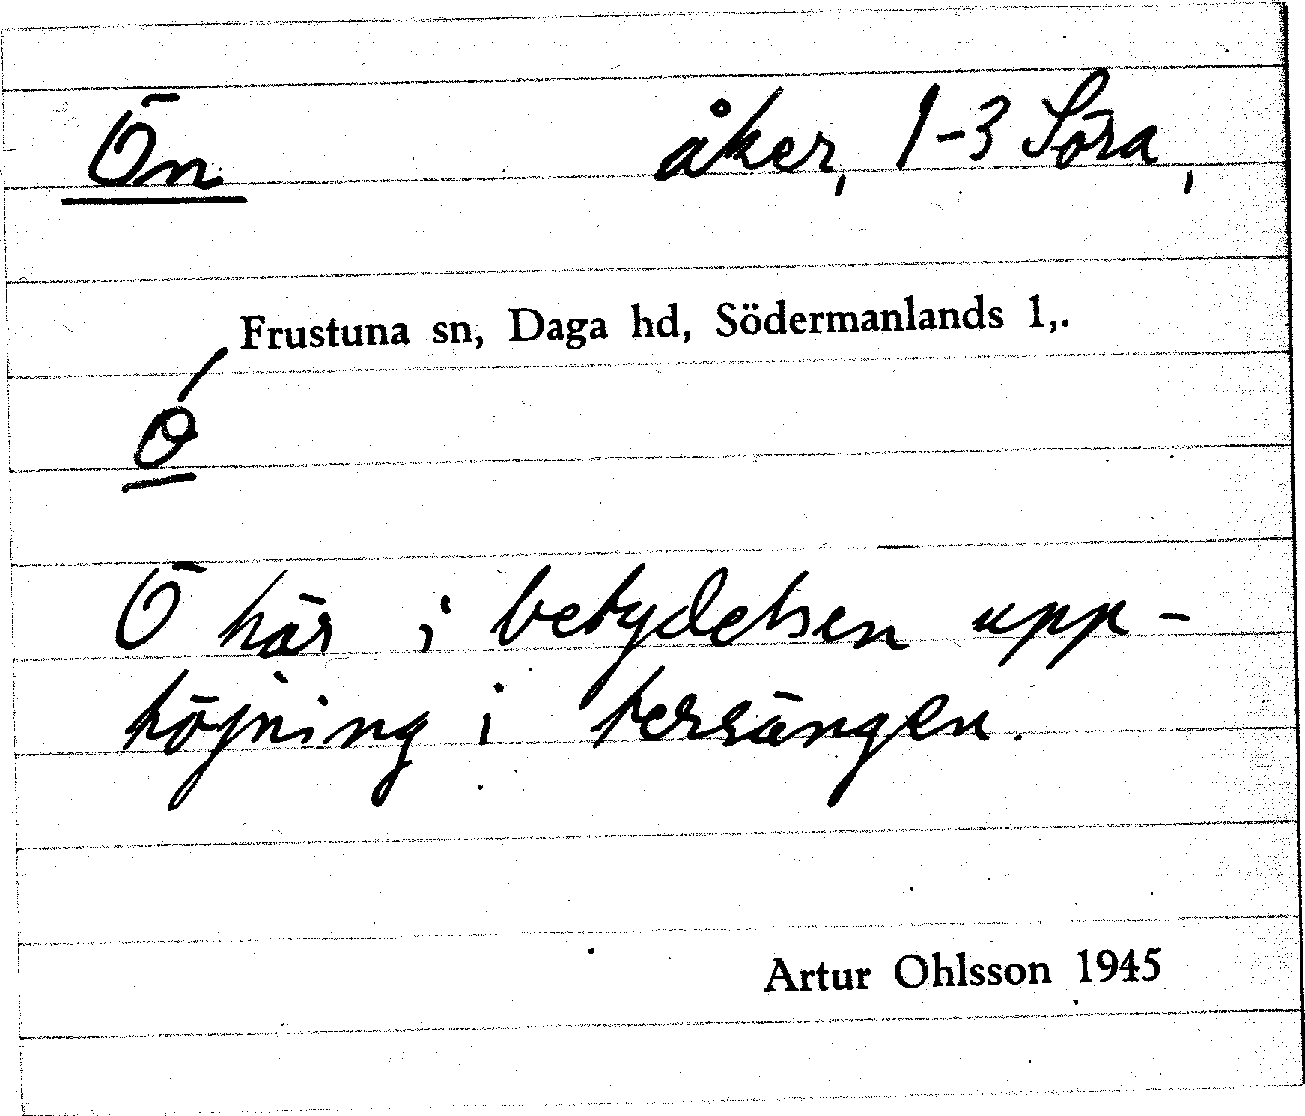 Ön åker, 1-3 Söra,
Frustuna sn, Daga hd, Södermanlands l,.
Ö
Ö här i betydelsen upp-
höjning i terrängen.
Artur Ohlsson 1945